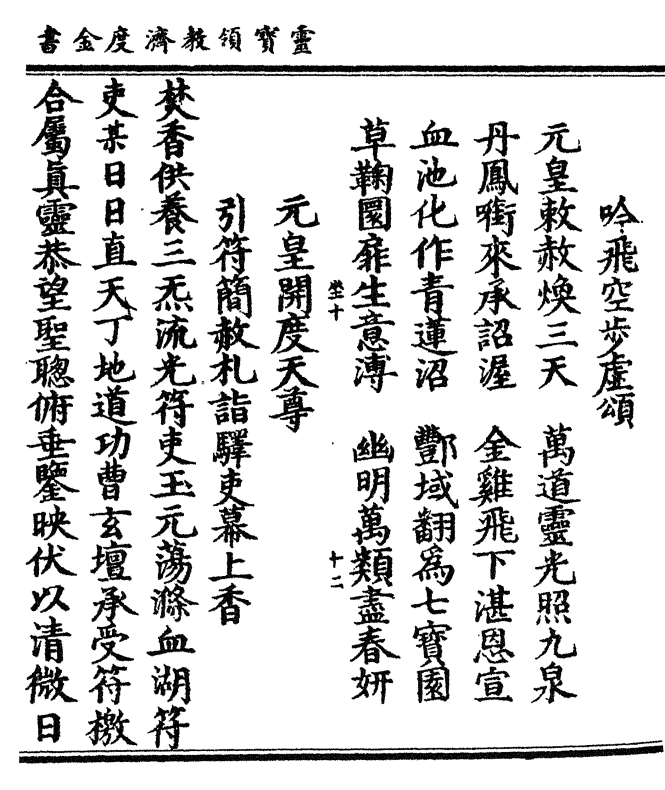 靈寶領教濟度金書
吟飛空步虛頌
元皇敕赦煥三天 萬道靈光照九泉
丹鳳啣來承詔渥 金雞飛下湛恩宣
血池化作青蓮沼 酆域翻為七寶園
草鞠圜扉生意溥 幽明萬類盡春妍
坐十 十二
元皇開度天尊
引符簡赦札詣驛吏幕上香
焚香供養三炁流光符吏玉元蕩滌血湖符
吏某日日直天丁地道功曹玄壇承受符檄
合屬眞靈恭望聖聰俯垂鑒映伏以清微日